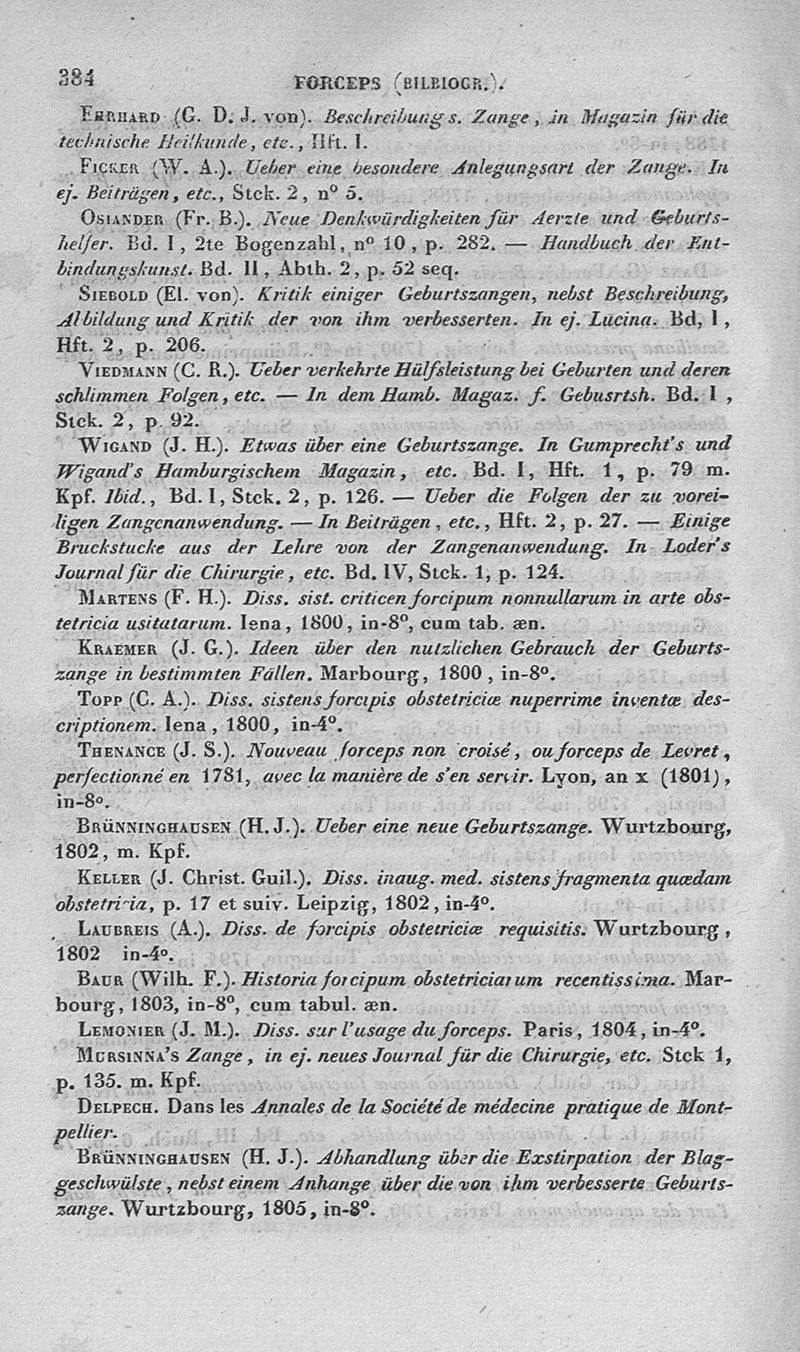 384 FORCEPS (BILBIOGR.).
EHRHARD (G. D. J. von). Beschreibung s. Zange, in Magazin für die
technische Heilkunde, etc., Hft. 1.
FICKER (W. A.). Ueber eine besondere Anlegungsart der Zange. In
ej. Beiträgen, etc., Stck. 2, n° 5.
OSIANDER (Fr. B.). Neue Denkwürdigkeiten für Aerzte und Geburts-
helfer. Bd. I, 2te Bogenzahl, n° 10, p. 282. — Handbuch der Ent-
bindungskunst. Bd. II, Abth. 2, p. 52 seq.
SIEBOLD (El. von). Kritik einiger Geburtszangen, nebst Beschreibung,
Albildung und Kritik der von ihm verbesserten. In ej. Lucina. Bd, I,
Hft. 2, p. 206.
VIEDMANN (C. R.). Ueber verkehrte Hülfsleistung bei Geburten und deren
schlimmen Folgen, etc. — In dem Hamb. Magaz. f. Gebusrtsh. Bd. I,
Stck. 2, p. 92.
WIGAND (J. H.). Etwas über eine Geburtszange. In Gumprecht's und
Wigand's Hamburgischem Magazin, etc. Bd. I, Hft. 1, p. 79 m.
Kpf. Ibid., Bd. I, Stck. 2, p. 126. — Ueber die Folgen der zu vorei-
ligen Zangenanwendung. — In Beiträgen, etc., Hft. 2, p. 27. — Einige
Bruckstucke aus der Lehre von der Zangenanwendung. In Loder's
Journal für die Chirurgie, etc. Bd. IV, Stck. 1, p. 124.
MARTENS (F. H.). Diss. sist. criticen forcipum nonnullarum in arte obs-
tetricia usitatarum. Iena, 1800, in-8°, cum tab. æn.
KRAEMER (J. G.). Ideen über den nutzlichen Gebrauch der Geburts-
zange in bestimmten Fällen. Marbourg, 1800, in-8°.
TOPP (C. A.). Diss. sistens forcipis obstetriciæ nuperrime inventæ des-
criptionem. Iena, 1800, in-4°.
THENANCE (J. S.). Nouveau forceps non croisé, ou forceps de Levret,
perfectionné en 1781, avec la manière de s'en servir. Lyon, an X (1801),
in-8°.
BRÜNNINGHAUSEN (H. J.). Ueber eine neue Geburtszange. Wurtzbourg,
1802, m. Kpf.
KELLER (J. Christ. Guil.). Diss. inaug. med. sistens fragmenta quædam
obstetricia, p. 17 et suiv. Leipzig, 1802, in-4°.
LAUBREIS (A.). Diss. de forcipis obstetriciæ requisitis. Wurtzbourg,
1802 in-4°.
BAUR (Wilh. F.). Historia forcipum obstetriciarum recentissima. Mar-
bourg, 1803, in-8°, cum tabul. æn.
LEMONIER (J. M.). Diss. sur l'usage du forceps. Paris, 1804, in-4°.
MURSINNA'S Zange, in ej. neues Journal für die Chirurgie, etc. Stck 1,
p. 135. m. Kpf.
DELPECH. Dans les Annales de la Société de médecine pratique de Mont-
pellier.
BRÜNNINGHAUSEN (H. J.). Abhandlung über die Exstirpation der Blag-
geschwülste, nebst einem Anhange über die von ihm verbesserte Geburts-
zange. Wurtzbourg, 1805, in-8°.